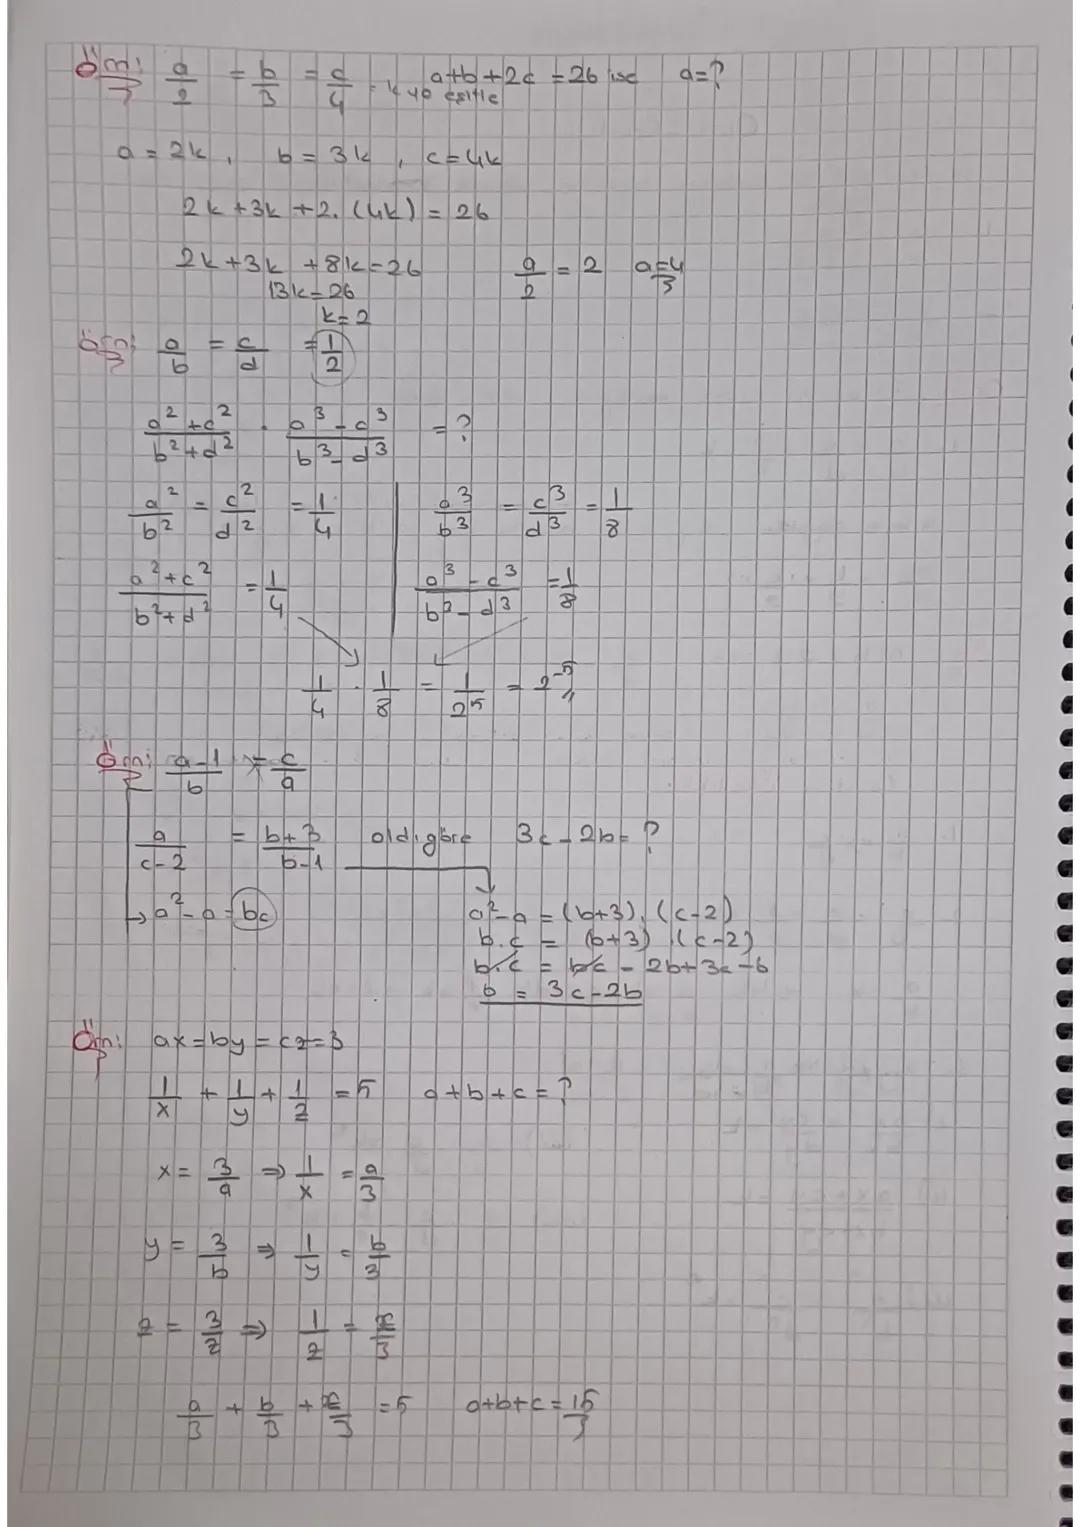 Örn: a/2 = b/3 = c/4 = k ya eşitle a+b+2c = 26 ise a=?
a = 2k, b = 3k, c = 4k
2k + 3k + 2.(4k) = 26
2k + 3k + 8k = 26 a/2 = 2 a=4
13k = 26
k = 2
Örn: a/b = c/d = 1/2
(a²+c²)/(b²+d²) . (a³-c³)/(b³-d³) = ?
a²/b² = c²/d² = 1/4 a³/b³ = c³/d³ = 1/8
(a²+c²)/(b²+d²) = 1/4 (a³-c³)/(b³-d³) = 1/8
1/4 . 1/8 = 1/2⁵ = 2⁻⁵
Örn: (a-1)/b = c/a
a/(c-2) = (b+3)/(b-1) oldığöre 3c - 2b = ?
→ a² - a = bc a²-a = (b+3).(c-2)
b.c = (b+3) (c-2)
b.c = bc - 2b + 3c - 6
6 = 3c - 2b
Örn: ax = by = cz = 3
1/x + 1/y + 1/z = 5 a+b+c = ?
x = 3/a ⇒ 1/x = a/3
y = 3/b ⇒ 1/y = b/3
z = 3/z ⇒ 1/z = c/3
a/3 + b/3 + c/3 = 5 a+b+c = 15